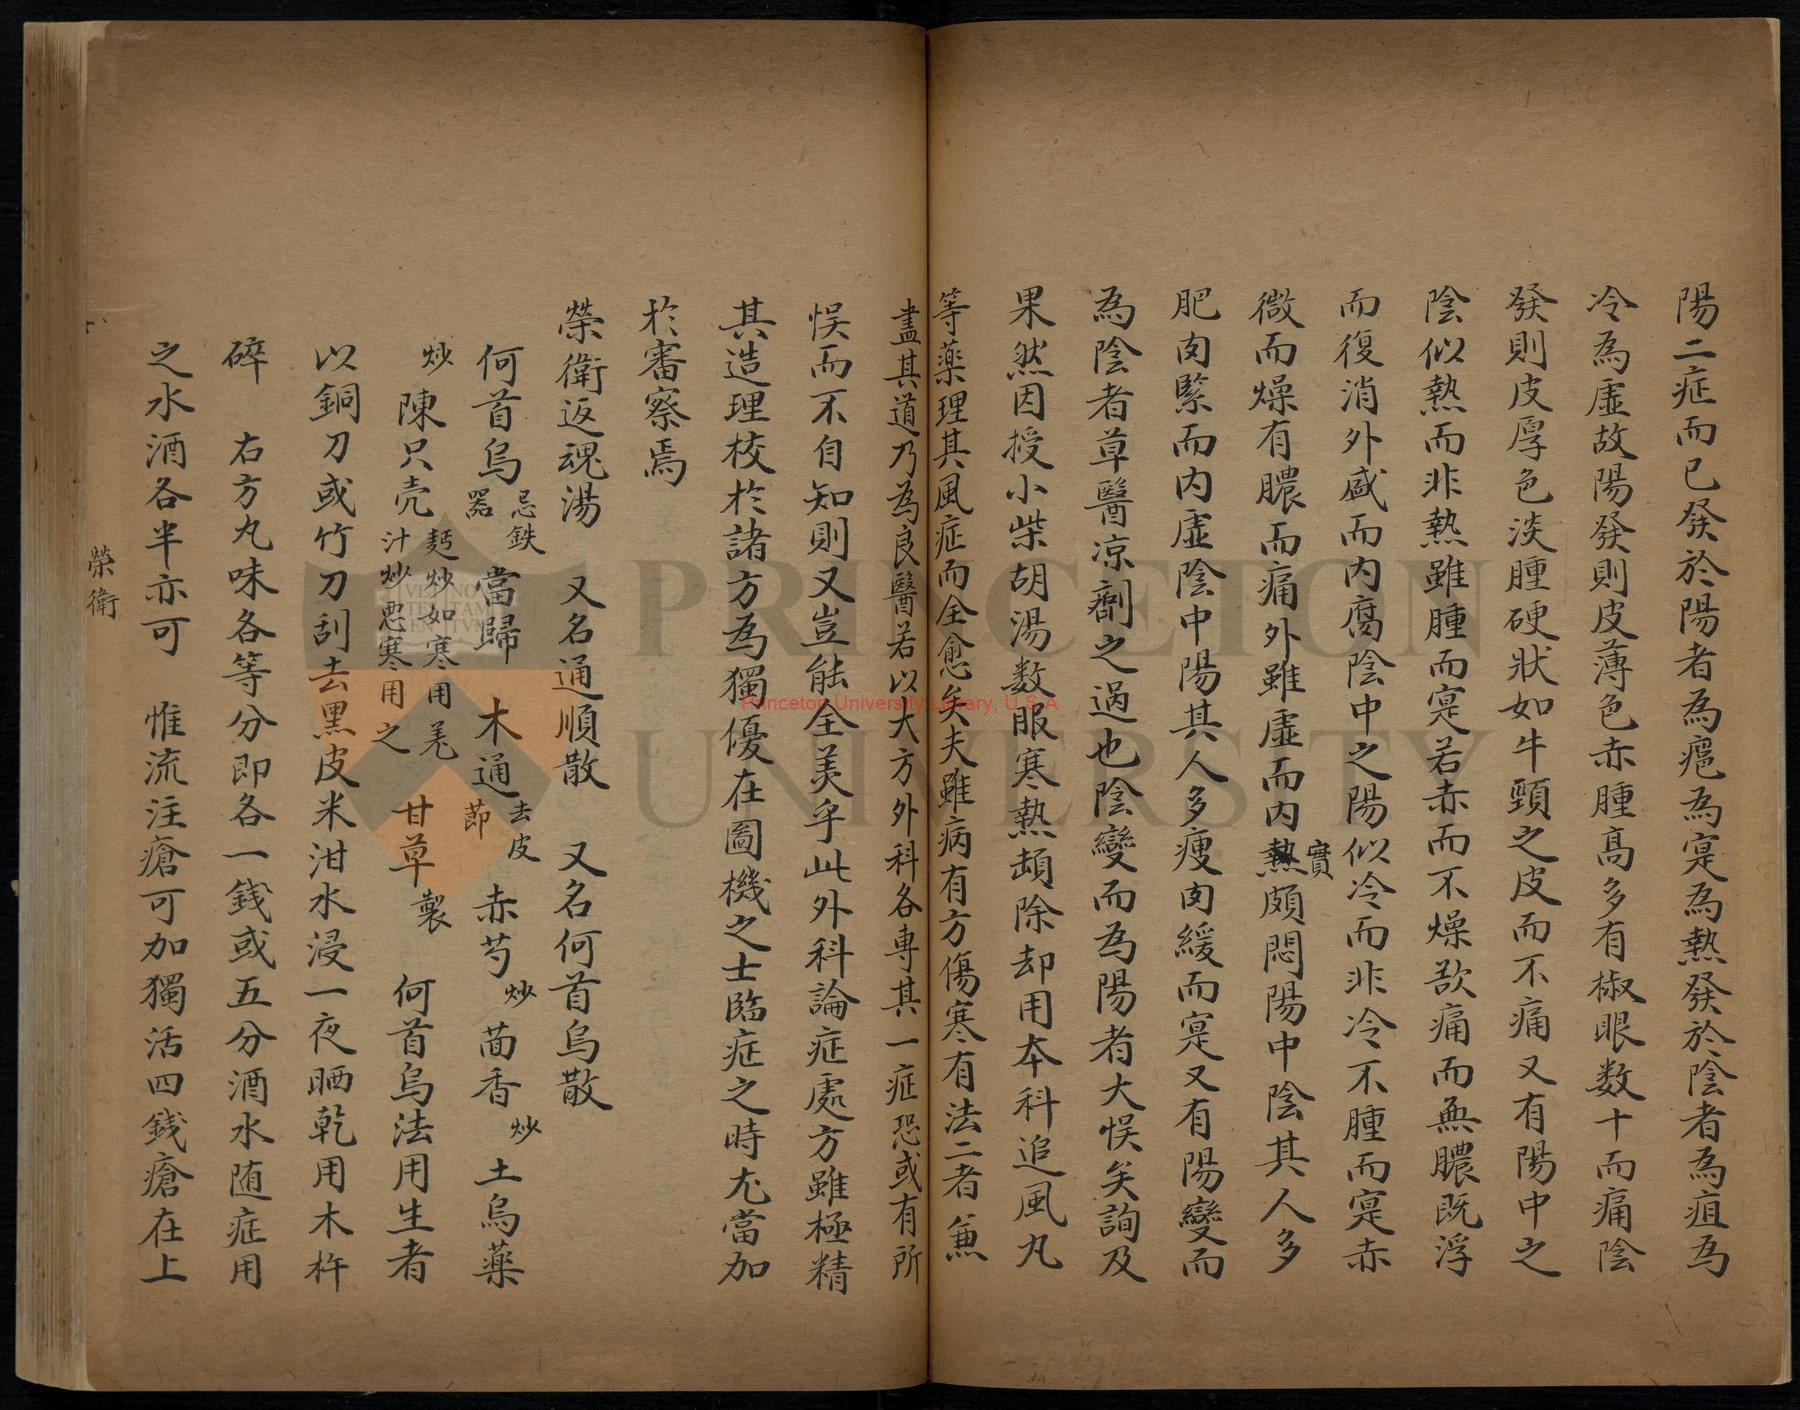 陽二症而已發於陽者為癌為寔為熱發於陰者為疽為
冷為虛故陽發則皮薄色赤腫高多有椒眼数十而痛陰
發則皮厚色淡腫硬狀如牛頸之皮而不痛又有陽中之
陰似熱而非熱雖腫而寔若赤而不燥欲痛而無膿既浮
而復消外盛而內腐陰中之陽似冷而非冷不腫而寔赤
微而燥有膿而痛外雖虛而內熱實頗悶陽中陰其人多
肥肉緊而內虛陰中陽其人多瘦肉緩而寔又有陽變而
為陰者草醫凉劑之過也陰變而為陽者大悞矣詢及
果然因授小柴胡湯数服寒熱頓除却用本科追風丸
等藥理其風症而全愈矣夫雖病有方傷寒有法二者兼
盡其道乃為良醫若以大方外科各專其一症恐或有所
悞而不自知則又豈能全美乎此外科論症處方雖極精
其造理校於諸方為獨優在圖機之士臨症之時尤當加
於審察焉
榮衛返魂湯 又名通順散 又名何首烏散
何首烏忌鉄器 當歸 木通去皮節 赤芍炒 茴香炒 土烏藥
炒 陳只壳麪炒如寒用羗汁炒恶寒用之 甘草製 何首烏法用生者
以銅刀或竹刀刮去黑皮米泔水浸一夜晒乾用木杵
碎 右方丸味各等分即各一錢或五分酒水随症用
之水酒各半亦可 惟流注瘡可加獨活四錢瘡在上
榮衛
PRINCETON
UNIVERSITY
Princeton University Library, U.S.A